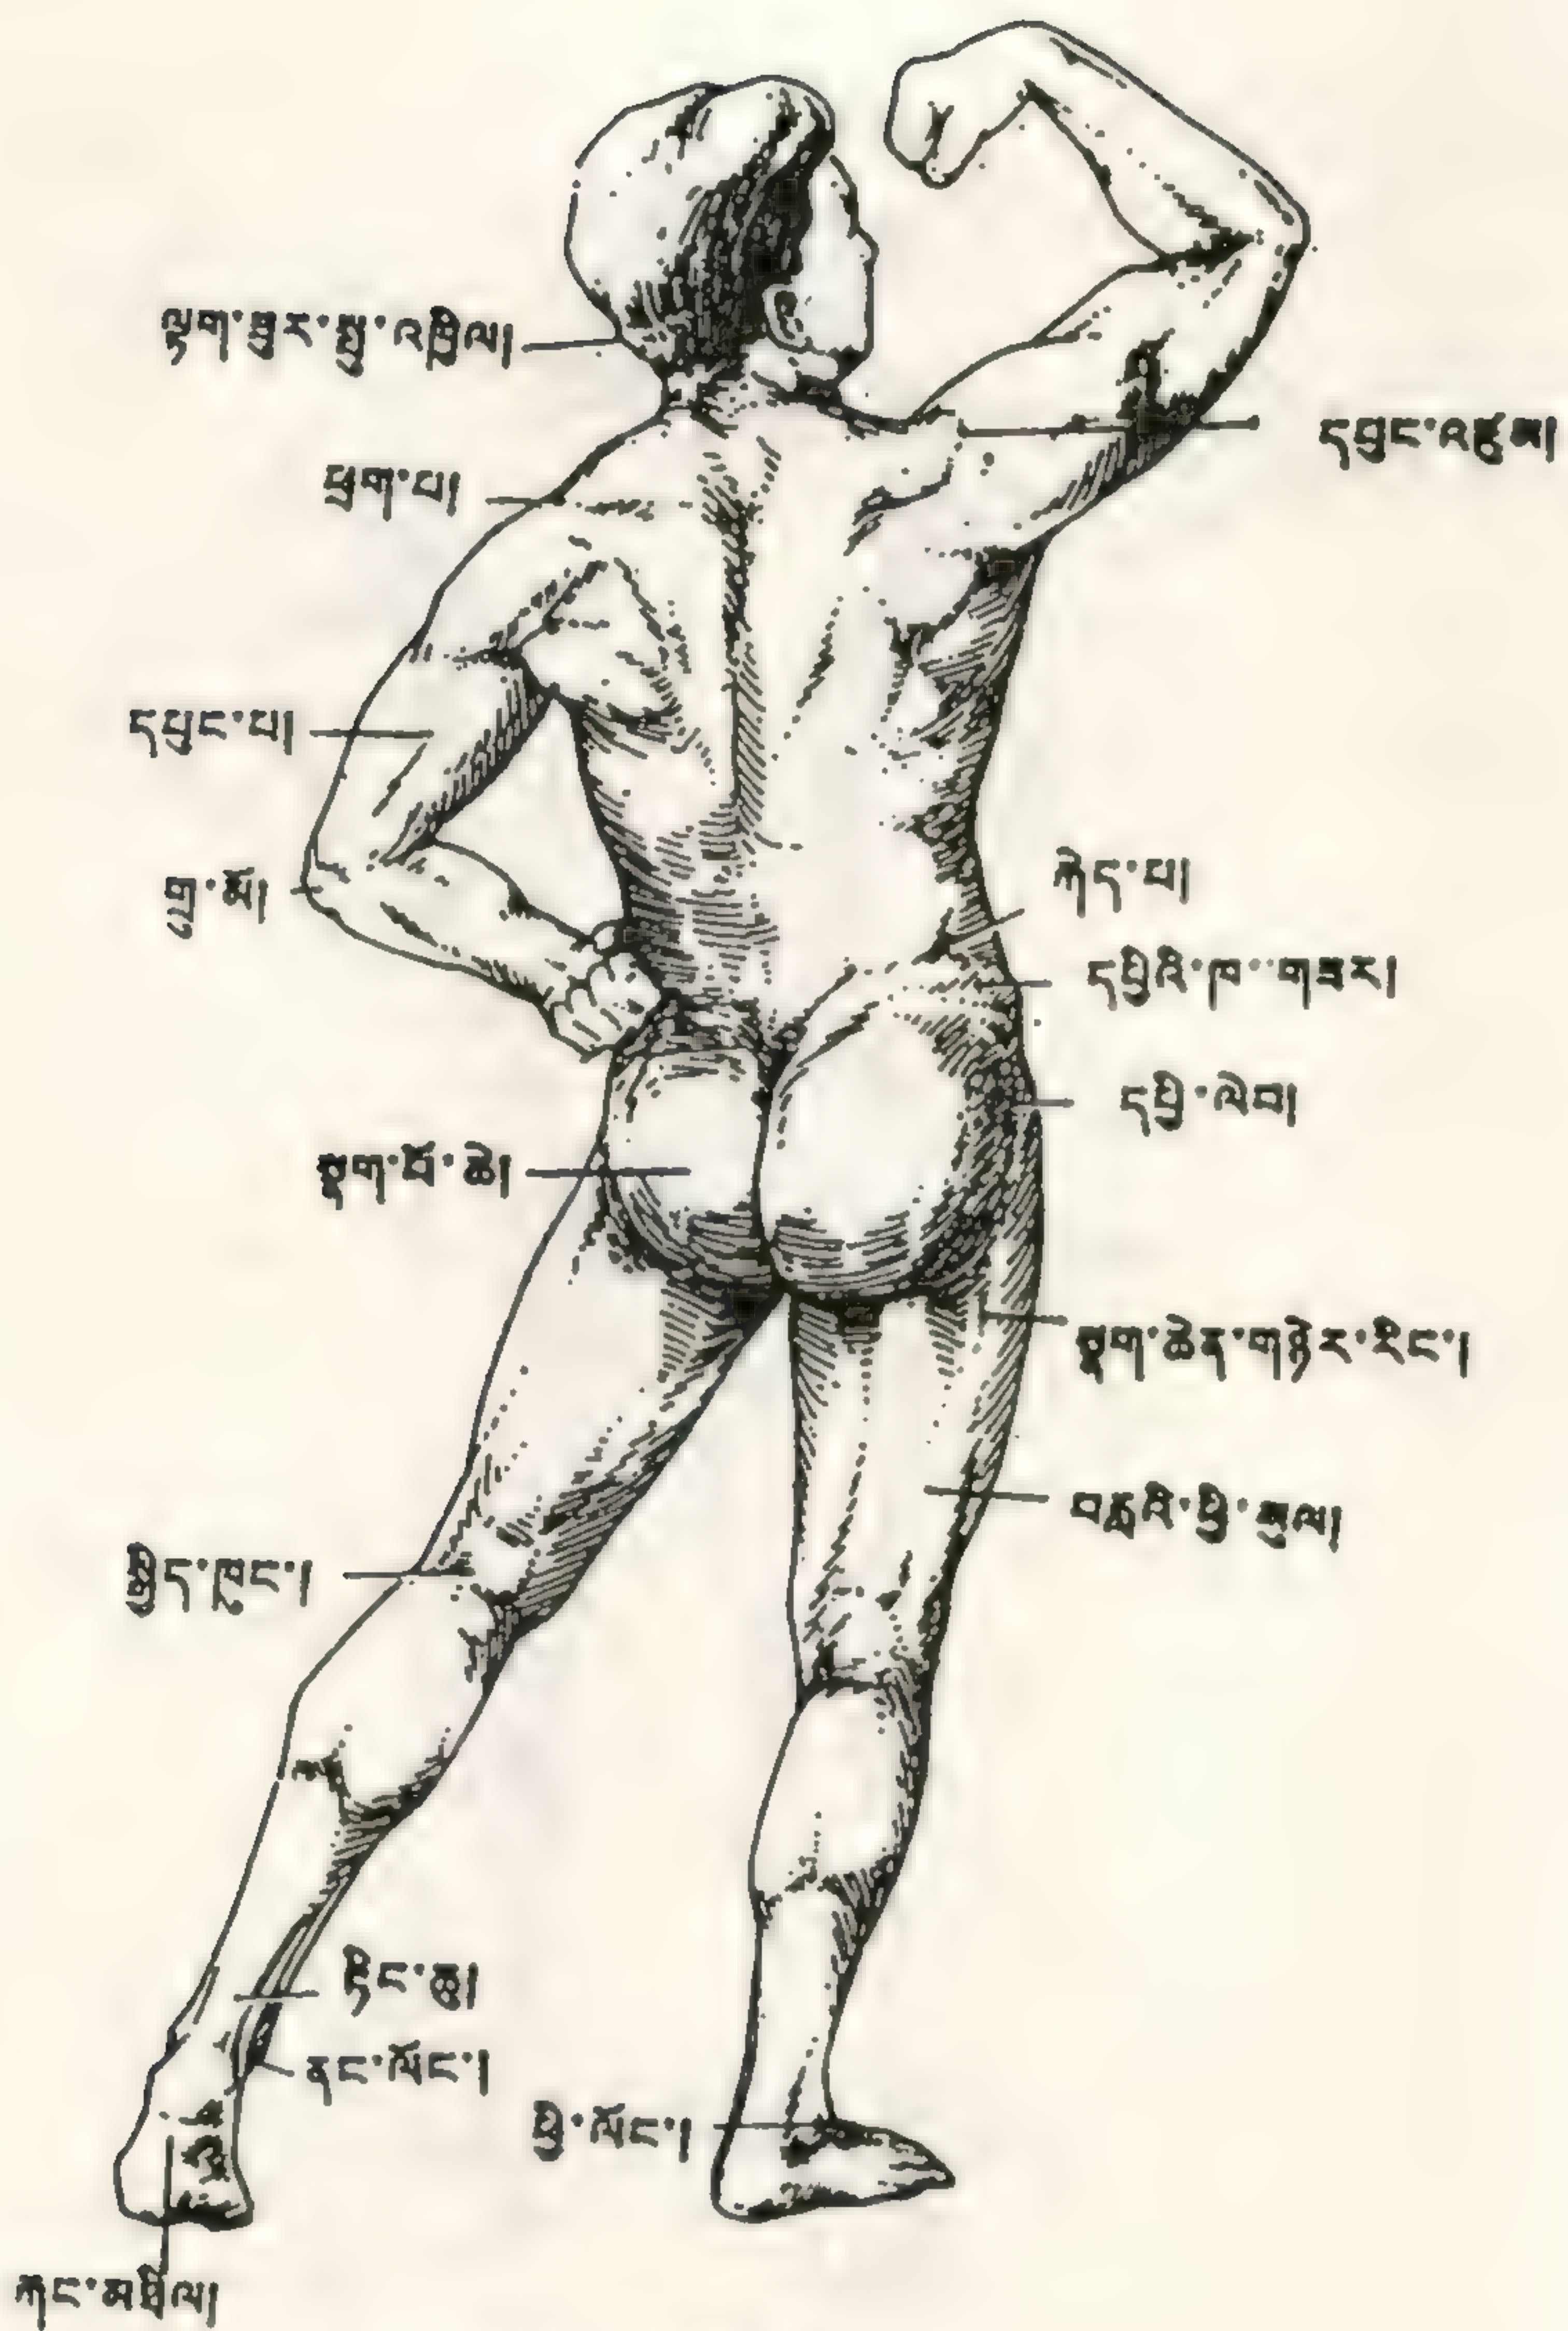 ལྟག་ཟུར་སྤྲ་འཁྱིལ།
དཔུང་འཛུམ།
ཕྲག་པ།
དཔུང་པ།
གྲུ་མོ།
རྐེད་པ།
དཔྱིའི་ཁ་གཟར།
དཔྱི་ལེབ།
སྟག་པོ་ཆེ།
སྟག་ཆེན་གཉེར་རིང་།
བརླའི་ཕྱི་ནུལ།
བྱིད་ཁུང་།
རྟིང་ཆུ།
ནང་ལོང་།
ཕྱི་ལོང་།
རྐང་མཐིལ།